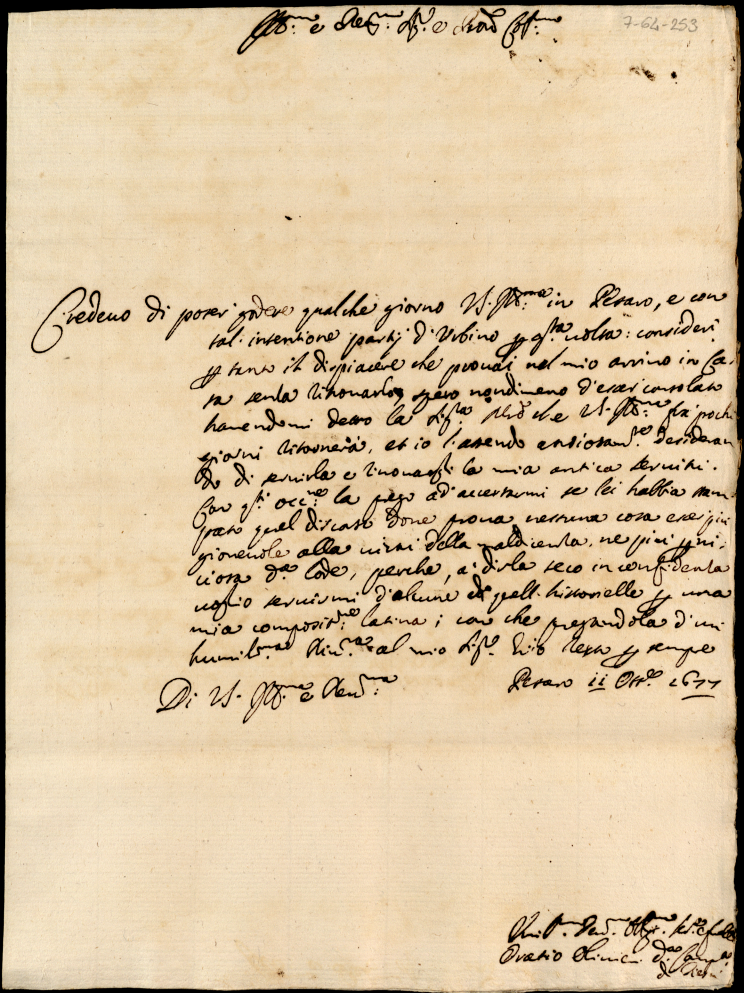 7-64-253
Ill:mo e Rev:mo Sig:r e Pron Col:mo
Credeuo di poter godere qualche giorno V.S. Ill:ma in Pesaro, e con
tal intentione partij d'Urbino p q.sta uolta: consideri
p tanto il dispiacere che prouai nel mio arriuo in Ca-
sa senza ritrouarlo, spero nondimeno d'esser consolato
hauendomi detto la Sig.ra che V.S. Ill:ma frà pochi
giorni ritornerà, et io l'attendo ansiosam.te desideran
do di seruirla e rinouargli la mia antica seruitù.
Con q.sta occ:ne la prego ad accertarmi se lei habbia stam
pato quel discorso doue proua nessuna cosa esser più
gioueuole alla uirtù della maldicenza, ne più perni-
ciosa d.a lode, perche, a dirla seco in confidenza
uoglio seruirmi d'alcune di quell'historielle p una
mia composit:ne latina; con che pregandola d'un
humil.ma riu.za al mio Sig.r Zio resto p sempre
Di V.S. Ill:ma e Reu:ma
Pesaro 11 Ott.e 1677
Oratio